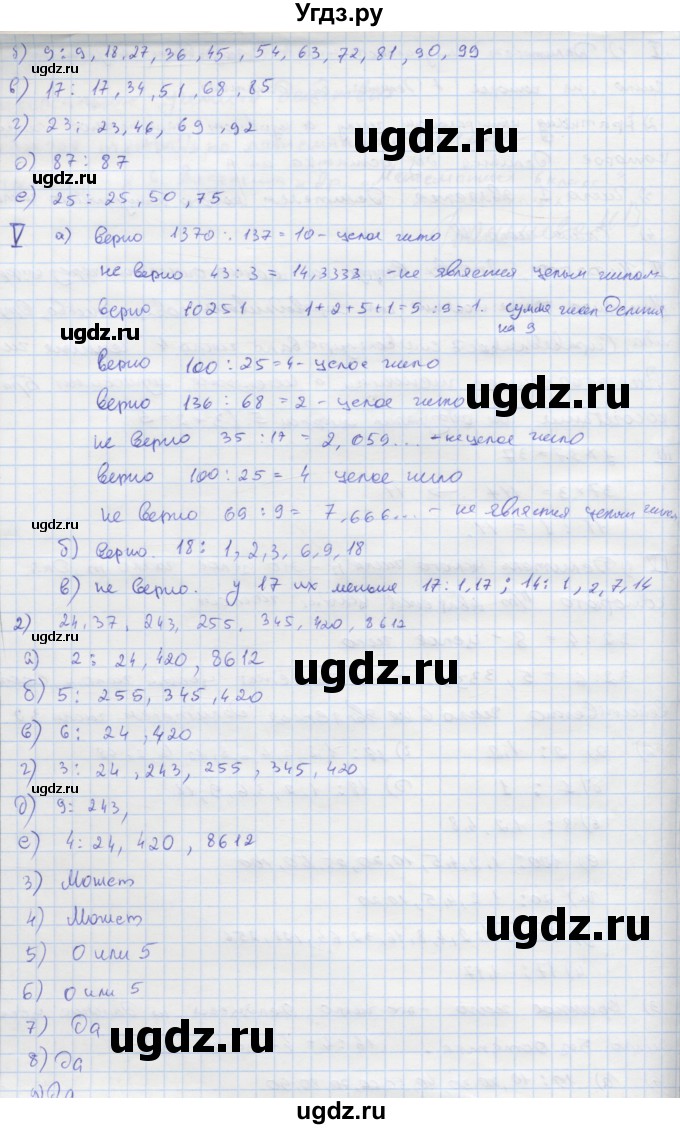 Угдз.ру
б) 9: 9, 18, 27, 36, 45, 54, 63, 72, 81, 90, 99
ugdz.ru
в) 17: 17, 34, 51, 68, 85
г) 23: 23, 46, 69, 92
ugdz.ru
д) 87: 87
ugdz.ru
е) 25: 25, 50, 75
V а) верно 1370 : 137 = 10 - целое число
не верно 43 : 3 = 14,3333 - не является целым числом
верно 10251 1+2+5+1=9 :9=1. сумма чисел делится
ugdz.ru
на 9
верно 100 : 25 = 4 - целое число
ugdz.ru
верно 136 : 68 = 2 - целое число
не верно 35 : 17 = 2,059... - не целое число
верно 100 : 25 = 4 целое число
не верно 69 : 9 = 7,666... - не является целым числом
ugdz.ru
б) верно. 18: 1, 2, 3, 6, 9, 18
в) не верно. у 17 их меньше 17: 1, 17; 14: 1, 2, 7, 14
2) 24, 37, 243, 255, 345, 420, 8612
ugdz.ru
а) 2: 24, 420, 8612
ugdz.ru
б) 5: 255, 345, 420
в) 6: 24, 420
г) 3: 24, 243, 255, 345, 420
ugdz.ru
д) 9: 243,
е) 4: 24, 420, 8612
3) Может
4) Может
ugdz.ru
5) 0 или 5
6) 0 или 5
7) Да
ugdz.ru
ugdz.ru
8) Да
9) Да
ugdz.ru